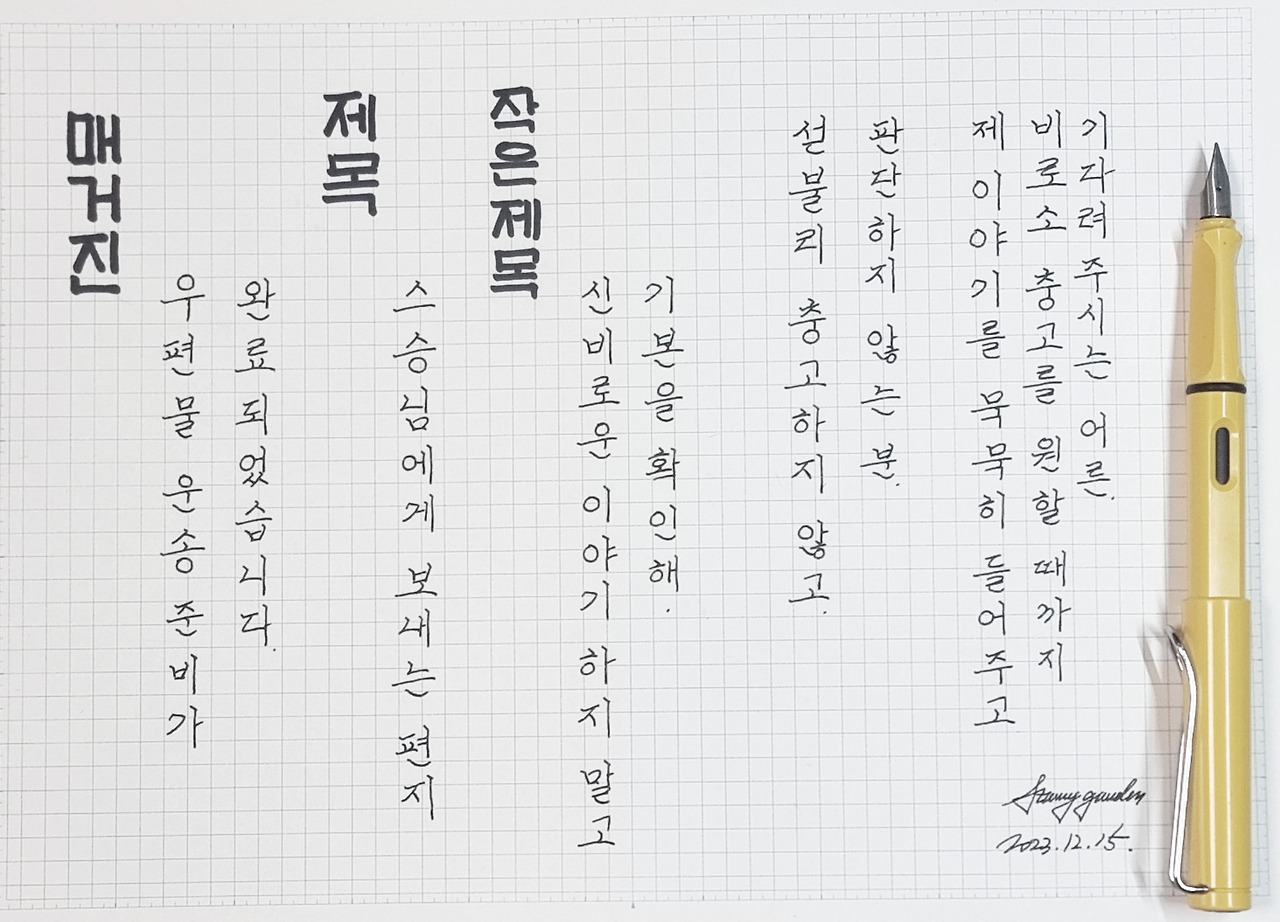 매거진
우편물 운송 준비가
완료되었습니다.
제목
스승님에게 보내는 편지
작은제목
신비로운 이야기 하지 말고
기본을 확인해.
섣불리 충고하지 않고.
판단하지 않는 분.
제 이야기를 묵묵히 들어주고
비로소 충고를 원할 때까지
기다려 주시는 어른.
Starry garden
2023.12.15.